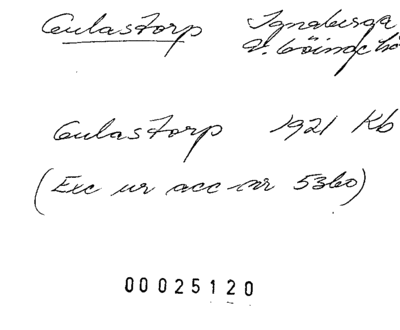 Gulastorp Ignaberga
V. Göinge hä
Gulastorp 1921 Kb
(Exc ur acc nr 5360)
00025120